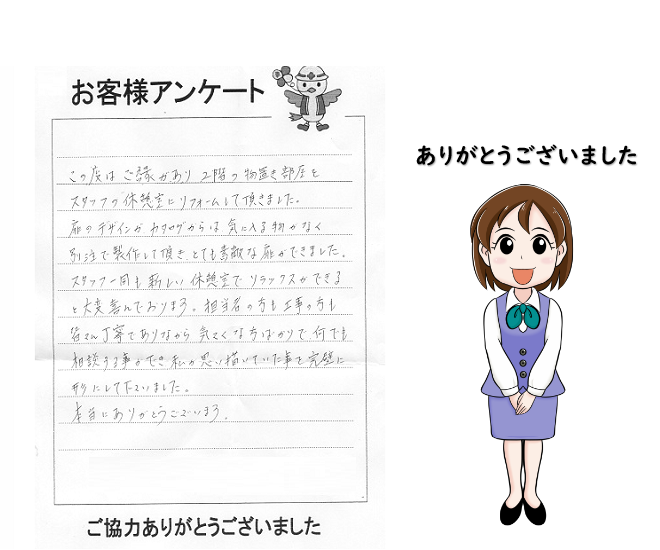 お客様アンケート
この度は ご縁があり 2階の物置き部屋を
スタッフの休憩室にリフォームして頂きました。
扉のデザインがカタログからは気に入る物がなく
別注で製作して頂き、とても素敵な扉ができました。
スタッフ一同も新しい休憩室でリラックスができる
と大変喜んでおります。担当者の方も工事の方も
皆さん丁寧でありながら気さくな方ばかりで何でも
相談する事ができ私が思い描いていた事を完璧に
形にして下さいました。
本当にありがとうございます。
ご協力ありがとうございました
ありがとうございました